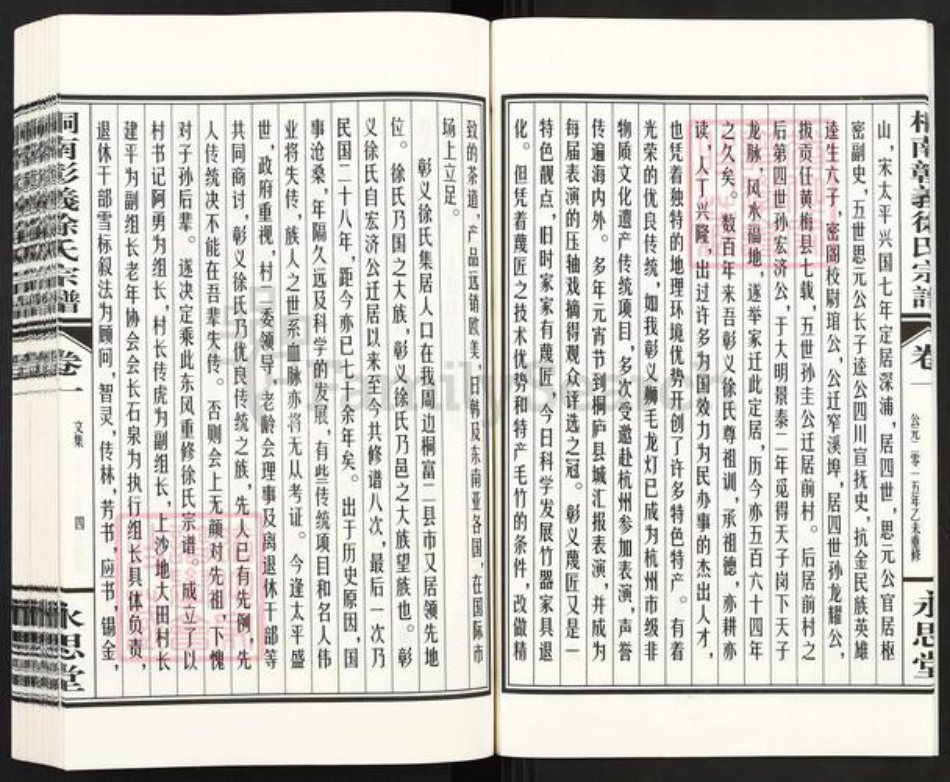 桐南彰義徐氏宗譜
卷一
公元二零一五年乙未重修
永思堂
山，宋太平兴国七年定居深浦，居四世，思元公官居枢
密副史，五世思元公长子逵公四川宣抚史，抗金民族英雄
逵生六子，密阁校尉琯公，公迁窄溪埠，居四世孙龙耀公，
拔贡任黄梅县七载，五世孙圭公迁居前村。后居前村之
后第四世孙宏济公，于大明景泰二年觅得天子岗下天子
龙脉，风水福地，遂举家迁此定居，历今亦五百六十四年
之久矣。数百年来吾彰义徐氏尊祖训，承祖德，亦耕亦
读，人丁兴隆，出过许多为国效力为民办事的杰出人才，
也凭着独特的地理环境优势开创了许多特色特产。有着
光荣的优良传统，如我彰义狮毛龙灯已成为杭州市级非
物质文化遗产传统项目，多次受邀赴杭州参加表演，声誉
传遍海内外。多年元宵节到桐庐县城汇报表演，并成为
每届表演的压轴戏摘得观众评选之冠。彰义蔑匠又是一
特色靓点，旧时家家有蔑匠，今日科学发展竹器家具退
化。但凭着蔑匠之技术优势和特产毛竹的条件，改做精
致的茶道，产品远销欧美，日韩及东南亚各国，在国际市
场上立足。
彰义徐氏集居人口在我周边桐富二县市又居领先地
位。徐氏乃国之大族，彰义徐氏乃邑之大族望族也。彰
义徐氏自宏济公迁居以来至今共修谱八次，最后一次乃
民国二十八年，距今亦已七十余年矣。出于历史原因，国
事沧桑，年隔久远及科学的发展，有些传统项目和名人伟
业将失传，族人之世系血脉亦将无从考证。今逢太平盛
世，政府重视，村三委领导，老龄会理事及离退休干部等
共同商讨，彰义徐氏乃优良传统之族，先人已有先例，先
人传统决不能在吾辈失传。否则会上无颜对先祖，下愧
对子孙后辈。遂决定乘此东风重修徐氏宗谱。成立了以
村书记阿勇为组长，村长传虎为副组长，上沙地大田村长
建平为副组长老年协会会长石泉为执行组长具体负责，
退休干部雪标叙法为顾问，智灵，传林，芳书，应书，锡金，
桐南彰義徐氏宗譜
卷一
文集
四
永思堂
FamilySearch